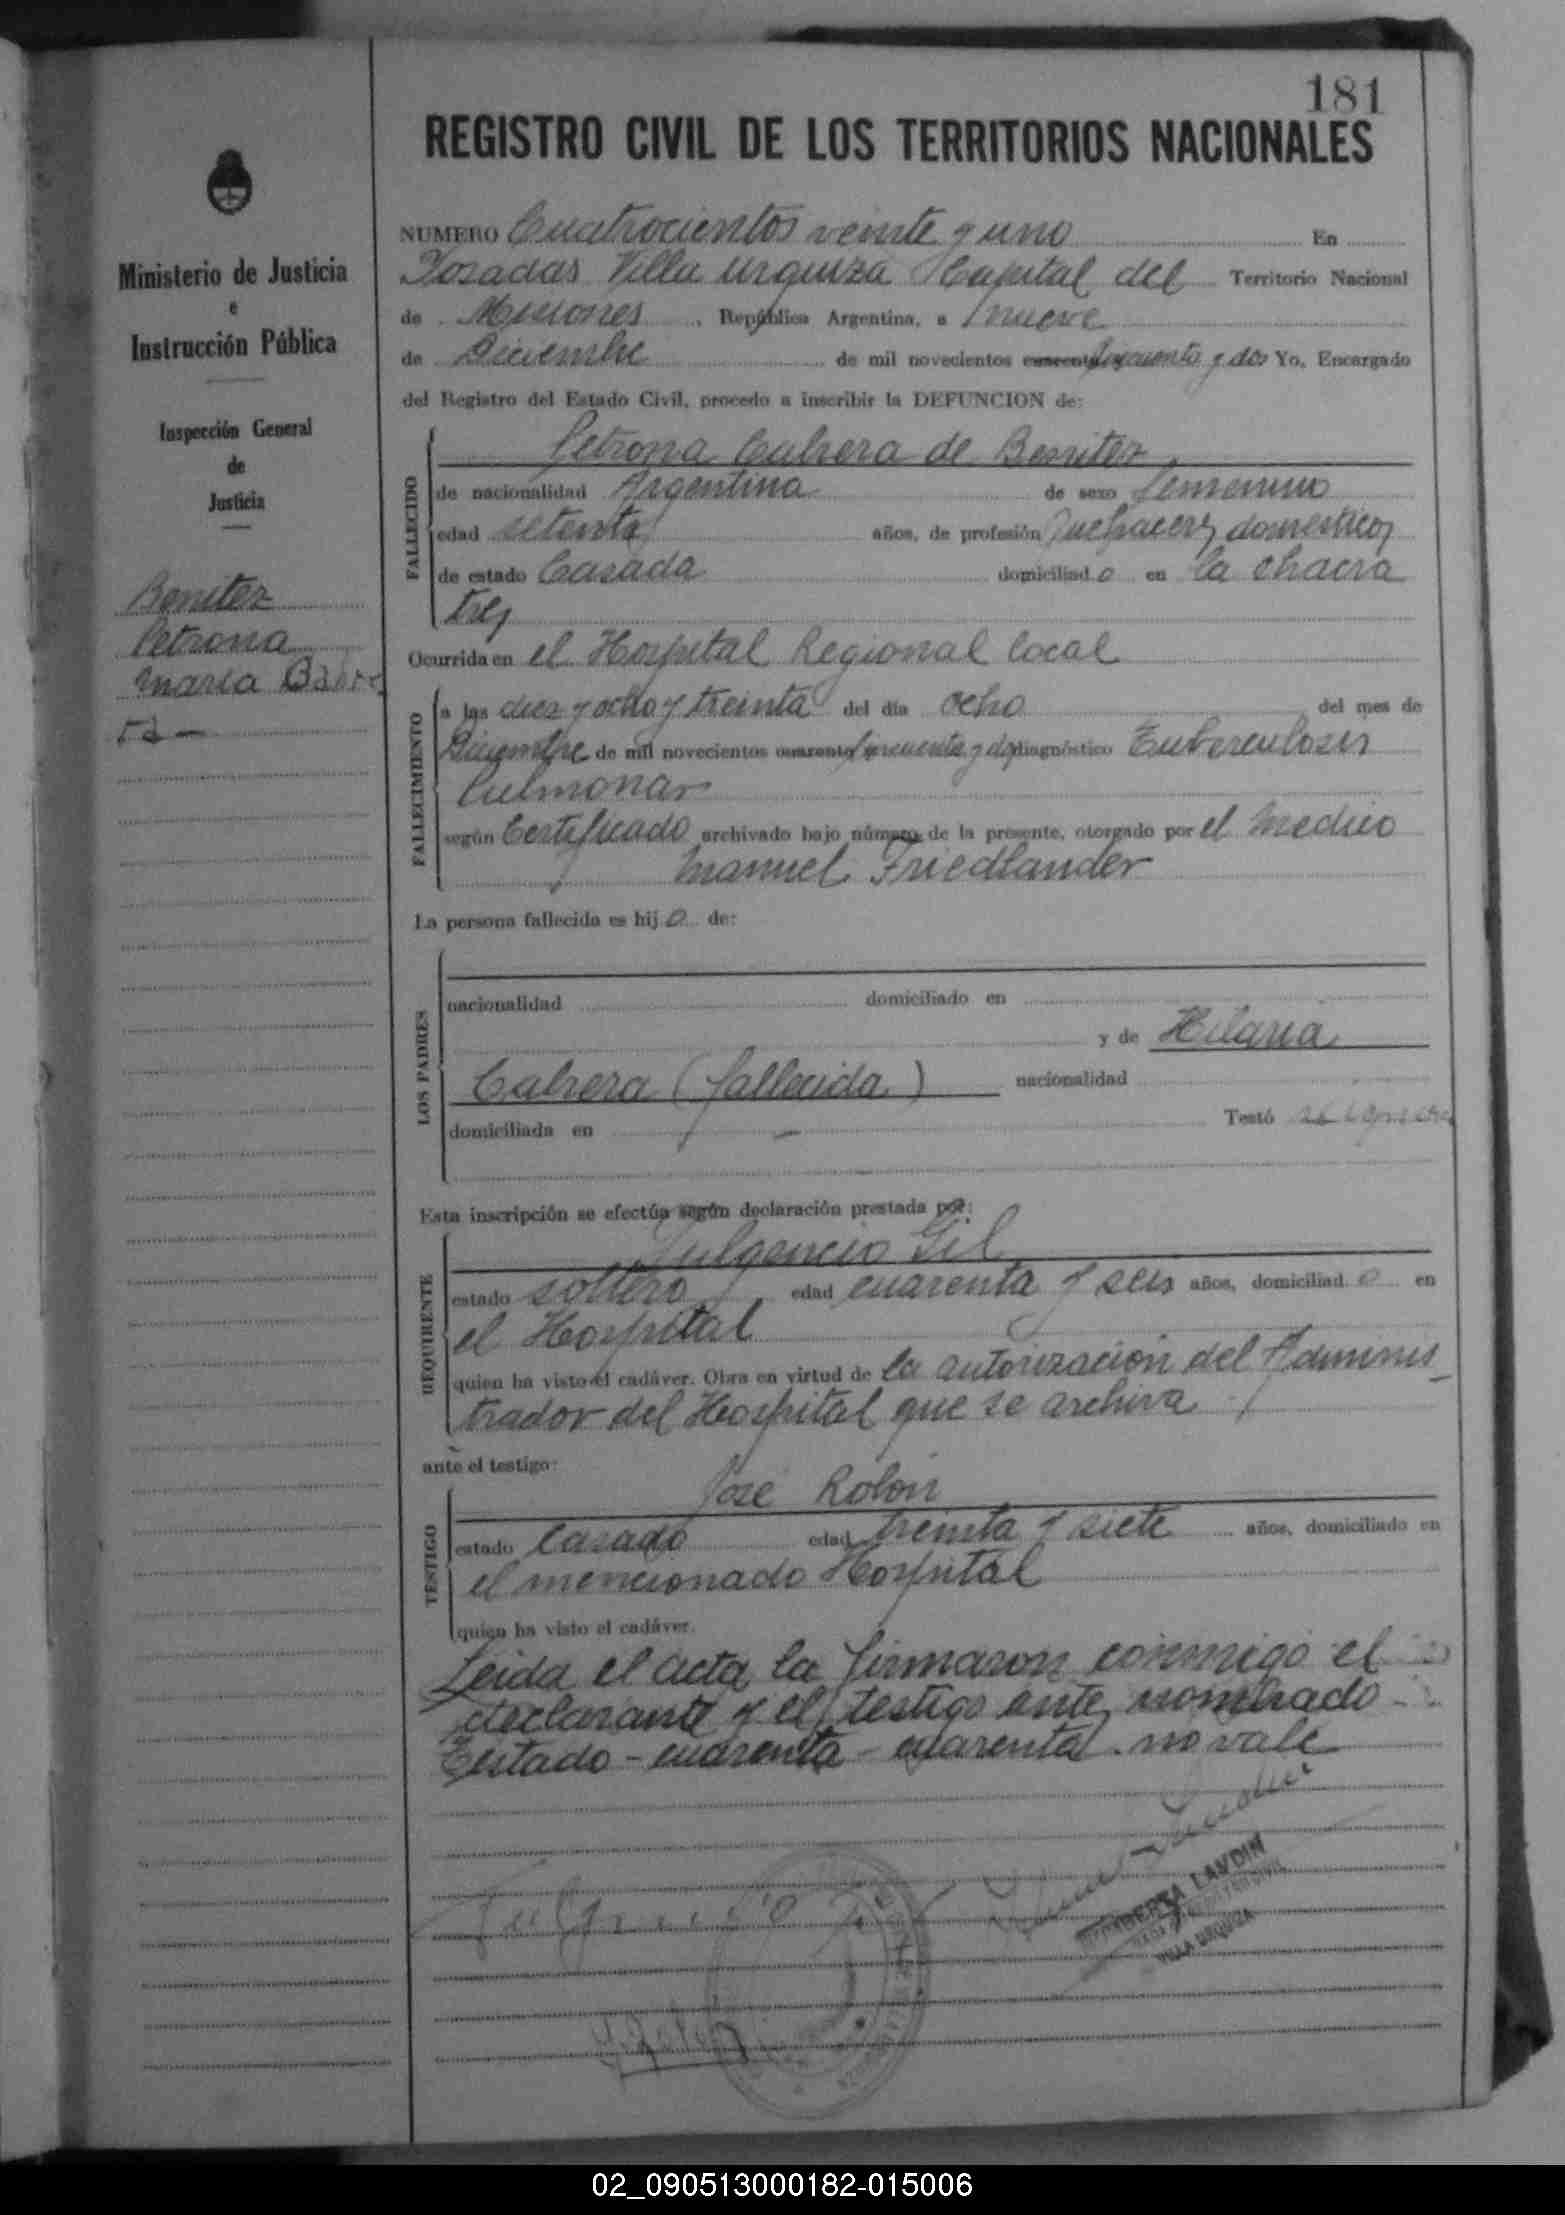 181
REGISTRO CIVIL DE LOS TERRITORIOS NACIONALES
Ministerio de Justicia
e
Instrucción Pública
Inspección General
de
Justicia
Benitez
Petrona
Maria
NUMERO Cuatrocientos veinte y uno En
Posadas Villa Urquiza Capital del Territorio Nacional
de Misiones, República Argentina, a nueve
de Diciembre de mil novecientos cuarenta cincuenta y dos Yo, Encargado
del Registro del Estado Civil, procedo a inscribir la DEFUNCION de:
FALLECIDO
Petrona Cabrera de Benitez
de nacionalidad Argentina de sexo femenino
edad setenta años, de profesión quehaceres domesticos
de estado Casada domiciliado en la chacra
tres
Ocurrida en el Hospital Regional local
FALLECIMIENTO
a las diez y ocho y treinta del día ocho del mes de
Diciembre de mil novecientos cuarenta cincuenta y dos diagnóstico Tuberculosis
Pulmonar
según Certificado archivado bajo número de la presente, otorgado por el Medico
Manuel Friedlander
La persona fallecida es hijo de:
LOS PADRES
nacionalidad domiciliado en
y de Hilaria
Cabrera (fallecida) nacionalidad
domiciliada en Testó se ignora
Esta inscripción se efectúa según declaración prestada por:
REQUIRENTE
Fulgencio Gil
estado soltero edad cuarenta y seis años, domiciliado en
el Hospital
quien ha visto el cadáver. Obra en virtud de la autorización del Adminis
trador del Hospital que se archiva
ante el testigo:
TESTIGO
José Rolón
estado casado edad treinta y siete años, domiciliado en
el mencionado Hospital
quien ha visto el cadáver.
Leida el acta la firmaron conmigo el
declarante y el testigo ante nombrado
Testado - cuarenta - cuarenta. no vale
Fulgencio Gil
BERTA LANDIN
VILLA URQUIZA
02_090513000182-015006